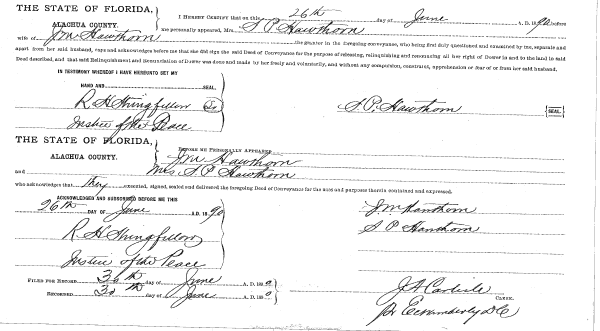 THE STATE OF FLORIDA,
ALACHUA COUNTY.
I HEREBY CERTIFY that on this 26th day of June A. D. 1890 before
me personally appeared, Mrs. S P Hawthorn
wife of J M Hawthorn the grantor in the foregoing conveyance, who being first duly questioned and examined by me, separate and
apart from her said husband, says and acknowledges before me that she did sign the said Deed of Conveyance for the purpose of releasing, relinquishing and renouncing all her right of Dower in and to the land in said
Deed described, and that said Relinquishment and Renunciation of Dower was done and made by her freely and voluntarily, and without any compulsion, constraint, apprehension or fear of or from her said husband.
IN TESTIMONY WHEREOF I HAVE HEREUNTO SET MY
HAND AND SEAL.
R H Stringfellow
S. P. Hawthorn SEAL
Justice of the Peace
THE STATE OF FLORIDA,
ALACHUA COUNTY.
BEFORE ME PERSONALLY APPEARED
J M Hawthorn
and Mrs. S P Hawthorn
who acknowledges that they executed, signed, sealed and delivered the foregoing Deed of Conveyance for the uses and purposes therein contained and expressed.
ACKNOWLEDGED AND SUBSCRIBED BEFORE ME THIS
26th DAY OF June A.D. 1890
J M Hawthorn
S P Hawthorn
R H Stringfellow
Justice of the Peace
FILED FOR RECORD 30th day of June A. D. 1890
RECORDED 30th day of June A. D. 1890
J A Carlisle
CLERK.
E Wimberly D C